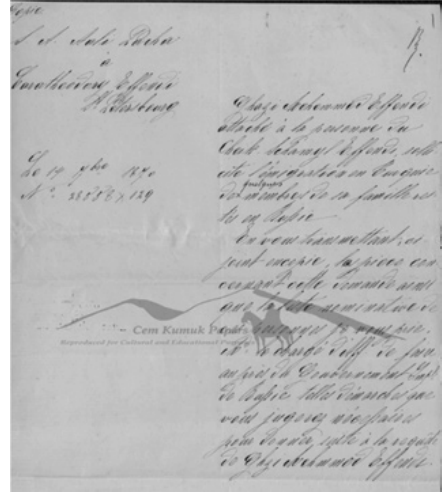 Copie
S. A. Aali Pacha
à
Caratheodory Effendi
St Petersbourg
Le 14 9bre 1870
Nº 28858 x 129
13.
Ghazi Mohammed Effendi
attaché à la personne du
Cheik Schamyl Effendi, solli
cite l'émigration en Turquie
de quelques membres de sa famille res
tés en Russie.
En vous transmettant, ci
joint en copie, les pièces con
cernant cette demande ainsi
que la liste nominative de
ces personnes je vous prie,
Mr le Chargé d'Aff. de faire
auprès du Gouvernement Impl
de Russie telles démarches que
vous jugerez nécessaires
pour donner suite à la requête
de Ghazi Mohammed Effendi.
Cem Kumuk Papers
Reproduced for Cultural and Educational Purposes